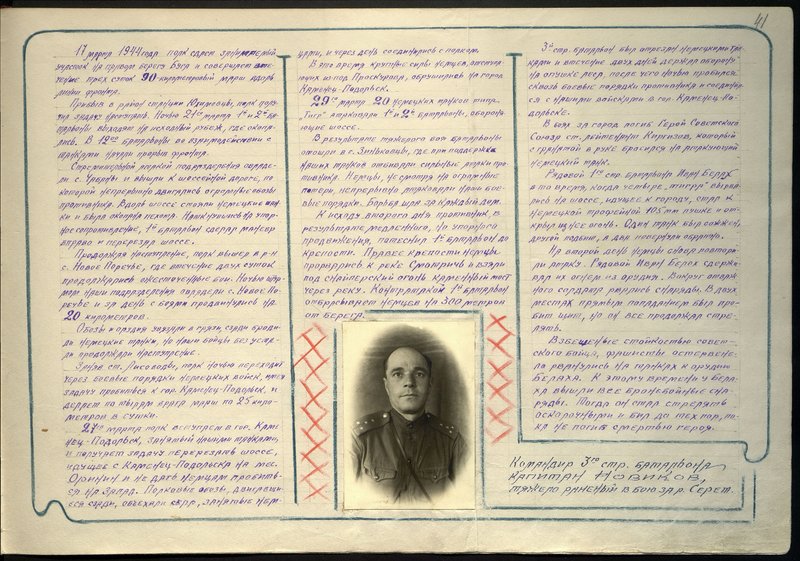 41
17 марта 1944 года полк сдает занимаемый
участок на правом берегу Буга и совершает в те-
чение трех суток 90-километровый марш вдоль
линии фронта.
Прибыв в район станции Юзимовцы, полк полу-
чил задачу наступать. Ночью 21го марта 1й и 2й ба-
тальоны выходят на исходный рубеж, где окопа-
лись. В 1200 батальоны во взаимодействии с
танками начали прорыв фронта.
Стремительной атакой подразделения овладе-
ли с. и вышли к шоссейной дороге, по
которой непрерывно двигались огромные обозы
противника. Вдоль шоссе стояли немецкие тан-
ки и была окопана пехота. Натолкнувшись на упор-
ное сопротивление, 1й батальон сделал маневр
вправо и перерезал шоссе.
Продолжая наступление, полк вышел в р-н
с. Новое Поречье, где в течение двух суток
продолжались ожесточенные бои. Ночью штур-
мом наши подразделения овладели с. Новое По-
речье и за день с боями продвинулись на
20 километров.
Обозы и орудия увязли в грязи, сзади броди-
ли немецкие танки, но наши бойцы без уста-
ли продолжали наступление.
Заняв ст. Лисоводы, полк ночью переходит
через боевые порядки немецких войск, имея
задачу пробиться к гор. Каменец-Подольск, и
делает по тылам врага марш по 25 кило-
метров в сутки.
27го марта полк вступает в гор. Каме-
нец-Подольск, занятый нашими танками,
и получает задачу перерезать шоссе,
идущее с Каменец-Подольска на мес.
Оринин и не дать немцам пробить-
ся на запад. Полковые обозы, двигавши-
еся сзади, объехали села, занятые нем-
цами, и через день соединились с полком.
В это время крупные силы немцев, отступа-
ющих из-под Проскурова, обрушились на город
Каменец-Подольск.
29го марта 20 немецких танков типа
"Тигр" атаковали 1й и 2й батальоны, обороня-
ющие шоссе.
В результате тяжелого боя батальоны
отошли в с. Зиньковцы, где при поддержке
наших танков отбивали сильные атаки про-
тивника. Немцы, несмотря на огромные
потери, непрерывно атаковали наши бое-
вые порядки. Борьба шла за каждый дом.
К исходу второго дня противник, в
результате медленного, но упорного
продвижения, потеснил 1й батальон до
крепости. Правее крепости немцы
прорвались к реке Смотрич и взяли
под снайперский огонь каменный мост
через реку. Контратакой 1й батальон
отбрасывает немцев на 300 метров
от берега.
3й стр. батальон был отрезан немецкими тан-
ками и в течение двух дней держал оборону
на опушке леса, после чего ночью пробился
сквозь боевые порядки противника и соединил-
ся с нашими войсками в гор. Каменец-По-
дольске.
В боях за город погиб Герой Советского
Союза ст. лейтенант Киргизов, который
с гранатой в руке бросился на атакующий
немецкий танк.
Рядовой 1го стр. батальона Иона Белах
в то время, когда четыре „тигра" вырва-
лись на шоссе, идущее к городу, стал к
немецкой трофейной 105 мм пушке и от-
крыл из нее огонь. Один танк был сожжен,
другой подбит, а два повернули обратно.
На второй день немцы снова повтори-
ли атаки. Рядовой Иона Белах сдержи-
вал их огнем из орудия. Вокруг отваж-
ного солдата рвались снаряды. В двух
местах прямым попаданием был про-
бит щит, но он все продолжал стре-
лять.
Взбешенные стойкостью совет-
ского бойца, фашисты остервене-
ло рванулись на танках к орудию
Белаха. К этому времени у Бела-
ха вышли все бронебойные сна-
ряды. Тогда он стал стрелять
осколочными и бил до тех пор, по-
ка не погиб смертью героя.
Командир 3го стр. батальона
капитан Новиков,
тяжело раненый в бою за р. Серет.